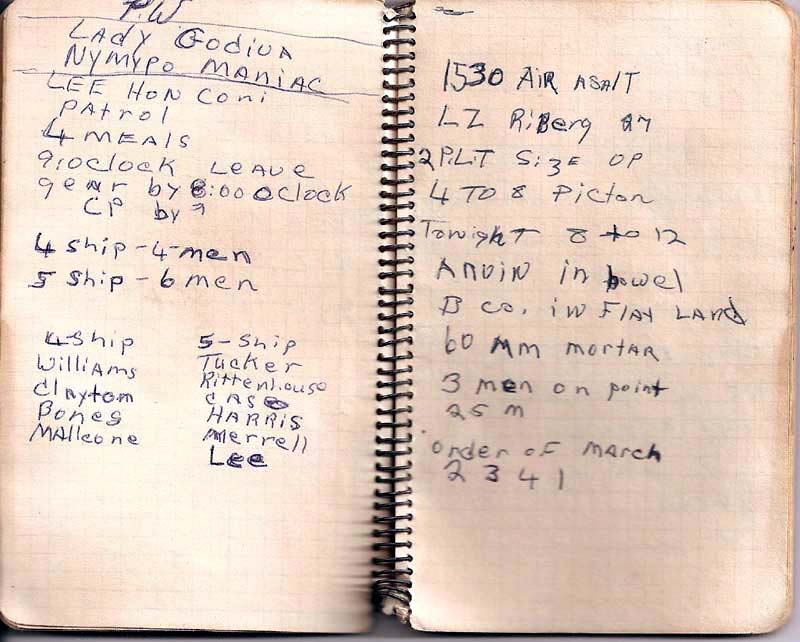 P.W
LADY GODIVA
NYMYPO MANIAC
LEE HON CONI
PATROL
4 MEALS
9:0CLOCK LEAVE
gear by 8:00 oclock
CP by ?
4 ship-4-men
5 ship-6 men
4-Ship
Williams
Claytom
Bones
MAlleone
5-Ship
Tucker
Rittenhouse
CASE
HARRIS
Merrell
Lee
1530 AIR ASALT
LZ RiBerg 27
2 PLT Size OP
4 TO 8 Picton
Tonight 8 to 12
ARVIN in bowel
B co. in Flat LAnd
60 MM mortar
3 men on point
25 m
order of MArch
2 3 4 1